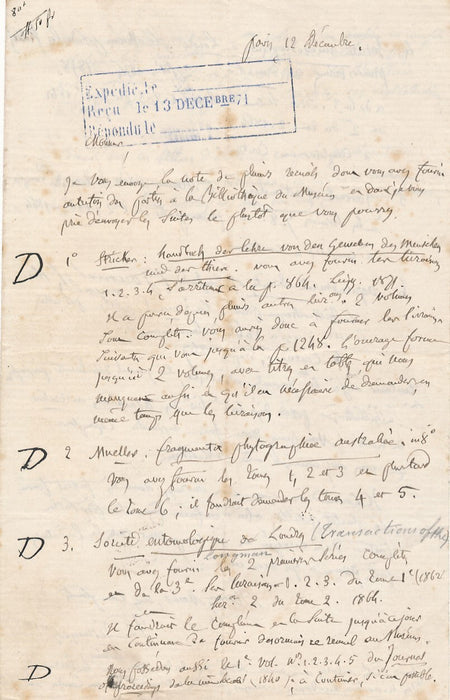 Paris 12 Décembre.
Expédié le
Reçu le 13 DECEBRE 71
Répondu le
Monsieur
Je vous envoye la note de plusieurs recueils dont vous avez fourni
des parties à la Bibliothèque du Muséum en
prie d'envoyer les suites le plutôt que vous pourrez
D 1° Stricker : Handbuch der lehre von den Geweben des Menschen
und der thiere. vous avez fourni les livraisons
1. 2. 3. 4, s'arrêtant à la p. 864. Leipz. 1871.
Il a paru depuis plusieurs autres livrons. 2 volumes
sont complets. vous auriez donc à fournir les livraisons
suivantes qui vont jusqu'à la p. 1248. L'ouvrage forme
jusqu'ici 2 volumes, avec titres et table, qui nous
manquent aussi et qu'il est nécessaire de demander en
même temps que les livraisons.
D 2 Mueller. fragmenta phytographiae australiae. in 8°
vous avez fourni les tomes 1, 2 et 3 et plus tard
le tome 6 ; il faudrait demander les tomes 4 et 5.
D 3. Société entomologique de Londres (Transactions of the)
Longman
vous avez fourni les 2 premières séries complètes
et de la 3e les livraisons 1. 2. 3. du Tome 1er (1862
et
2 du Tome 2. 1864.
Il faudrait le complément et la suite jusqu'à ce jour
et continuer de fournir désormais ce recueil au Muséum.
D Nous possédons aussi le 1er vol. nos 1. 2. 3. 4. 5 du Journal
of proceedings de la 1840 à continuer, si c'est possible.